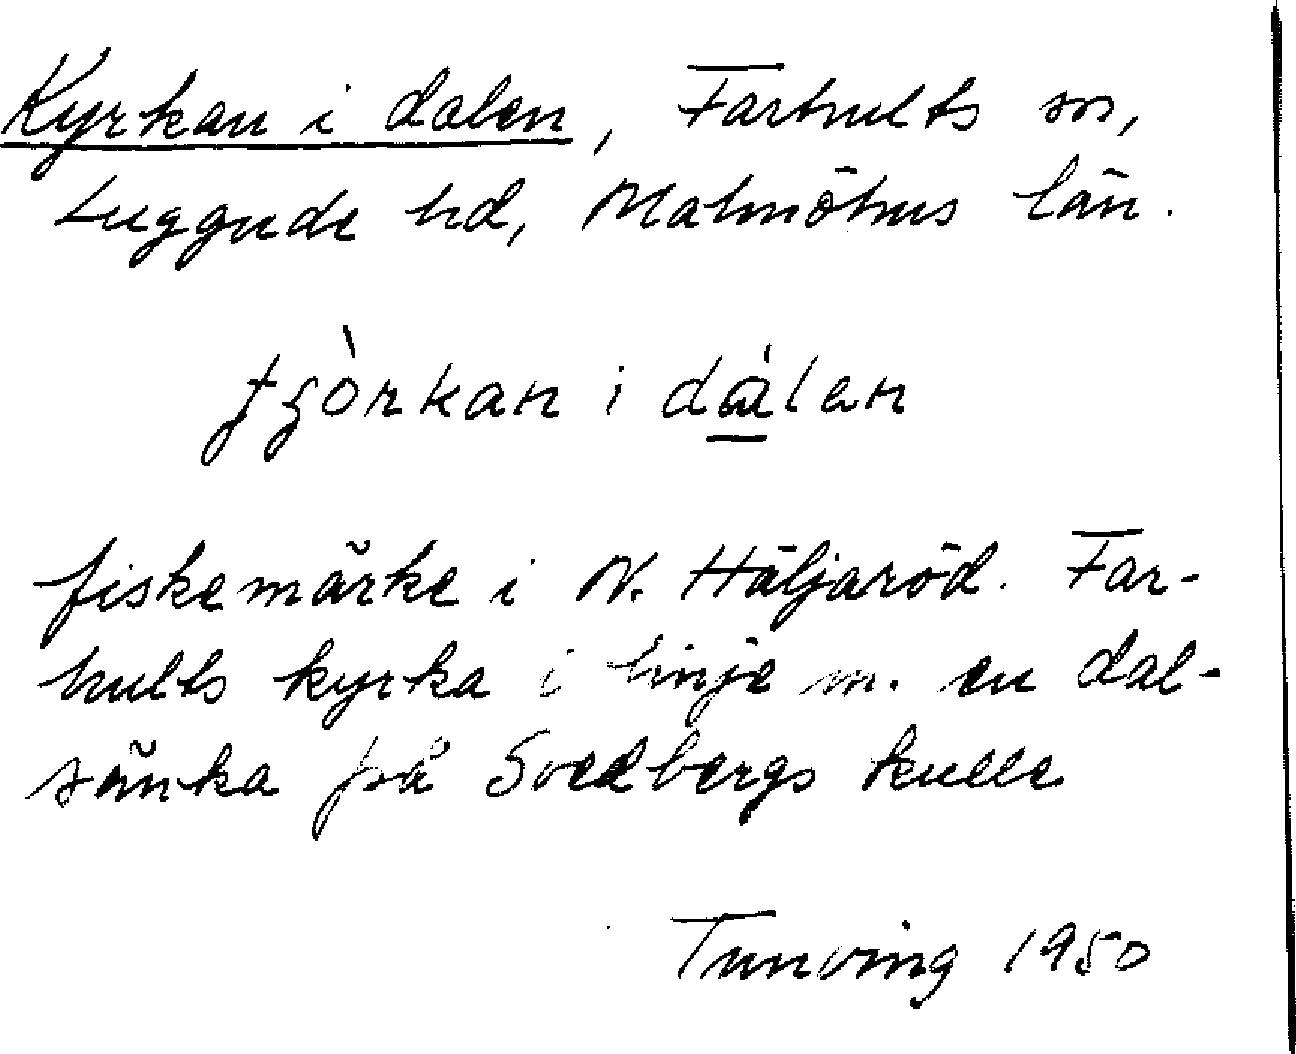 Kyrkan i dalen, Farhults sn,
Luggude hd, Malmöhus län.
tʃòrkan i dálen
fiskemärke i N. Häljaröd. Far-
hults kyrka i linje m. en dal-
sänka på Svedbergs kulle
Tunving 1950